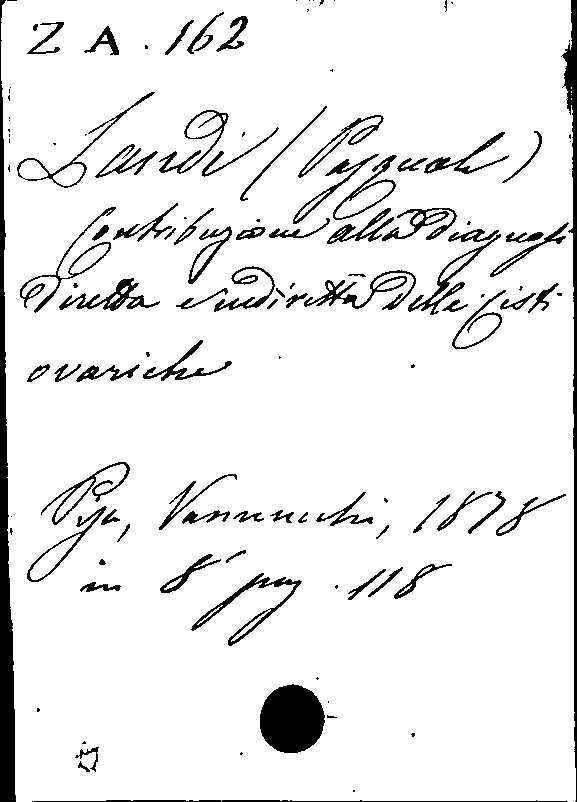 Z A. 162
Landi (Pasquale)
Contribuzione alla Diagnosi
Diretta e indiretta delle Cisti
ovariche
Pisa, Vannucchi, 1878
in 8° pag. 118